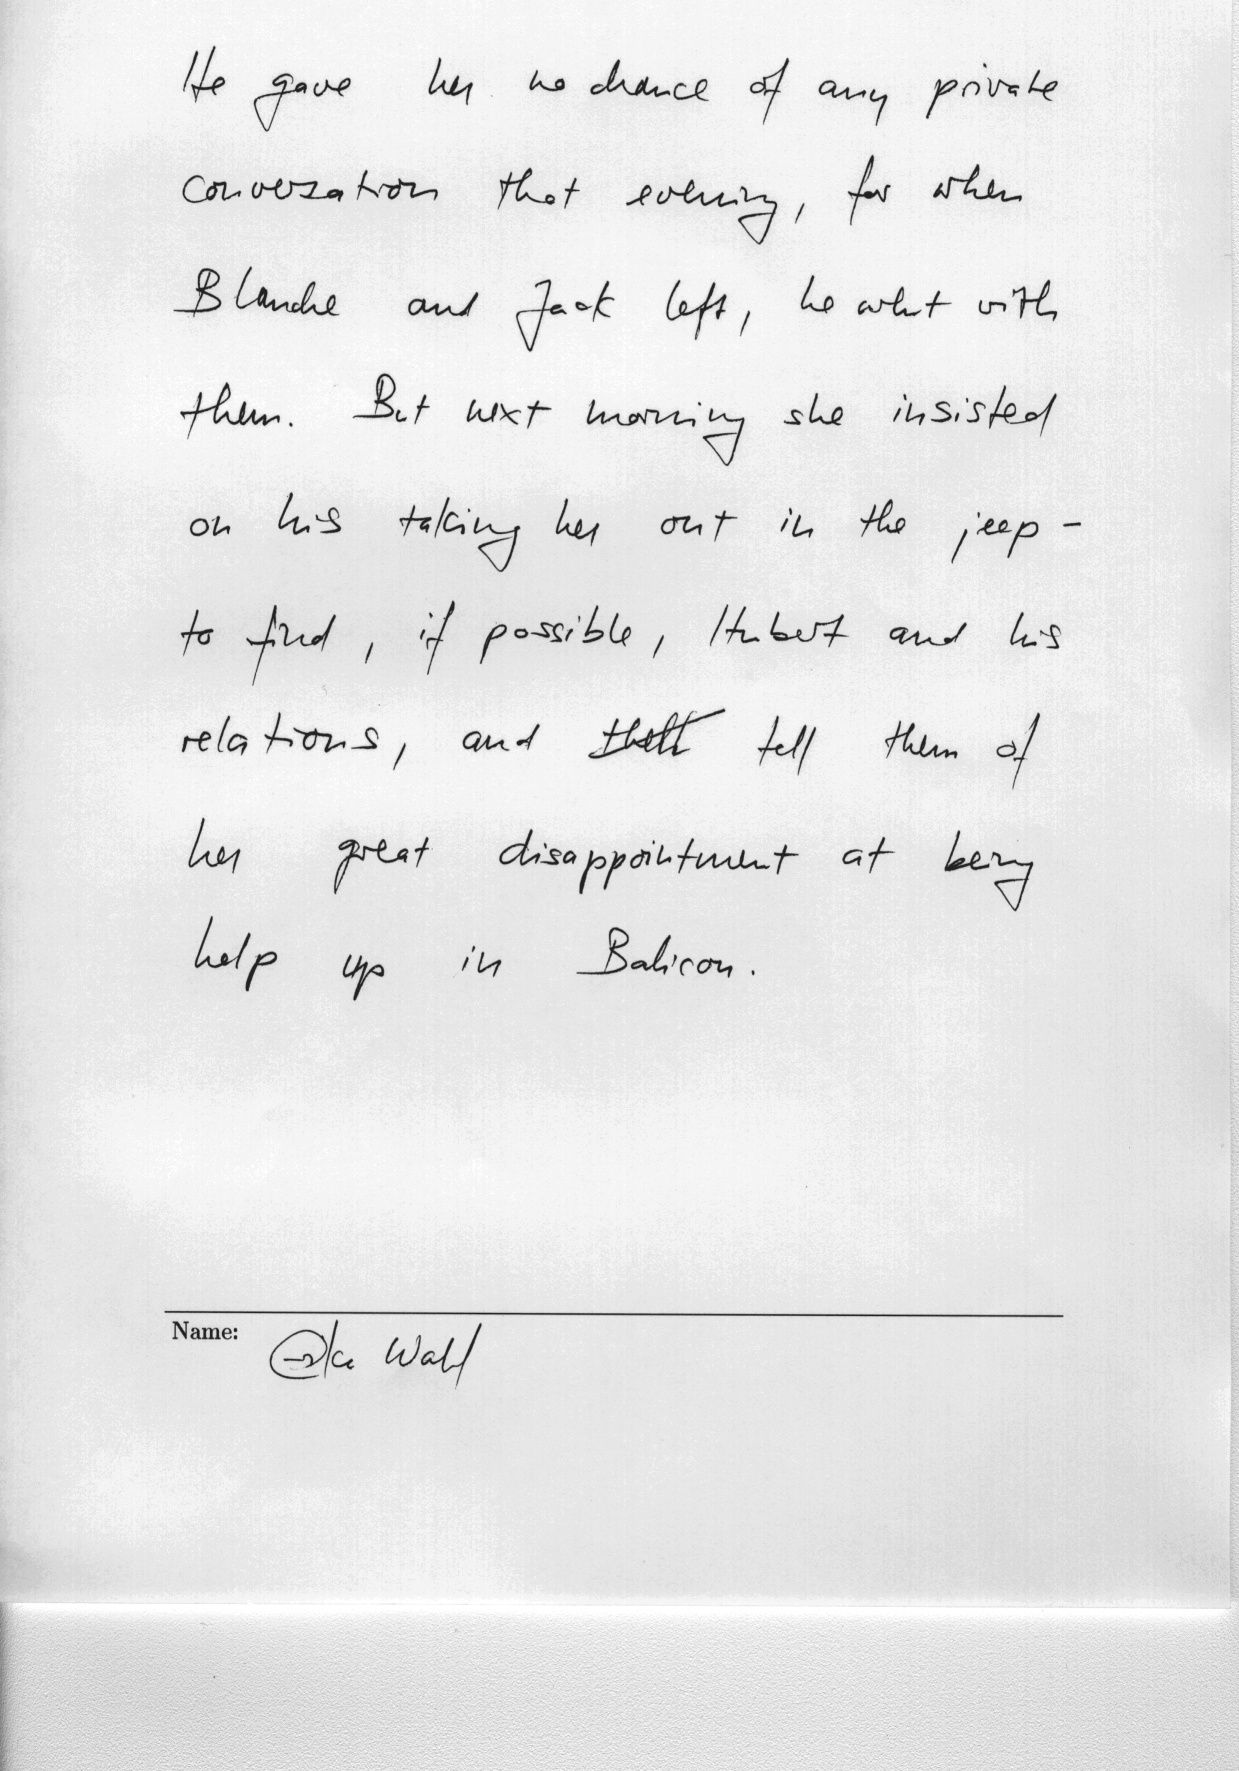 He gave her no chance of any private
conversation that evening, for when
Blanche and Jack left, he went with
them. But next morning she insisted
on his taking her out in the jeep -
to find, if possible, Hubert and his
relations, and tell them of
her great disappointment at being
help up in Balicon.
Name: Wahl